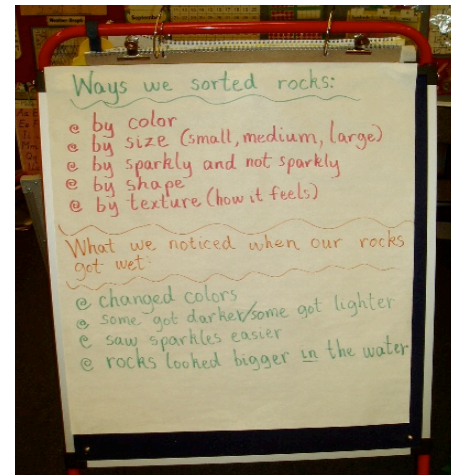 Weather Graph
September
Ways we sorted rocks:
@ by color
@ by size (small, medium, large)
@ by sparkly and not sparkly
@ by shape
@ by texture (how it feels)
What we noticed when our rocks
got wet:
@ changed colors
@ some got darker/some got lighter
@ saw sparkles easier
@ rocks looked bigger in the water